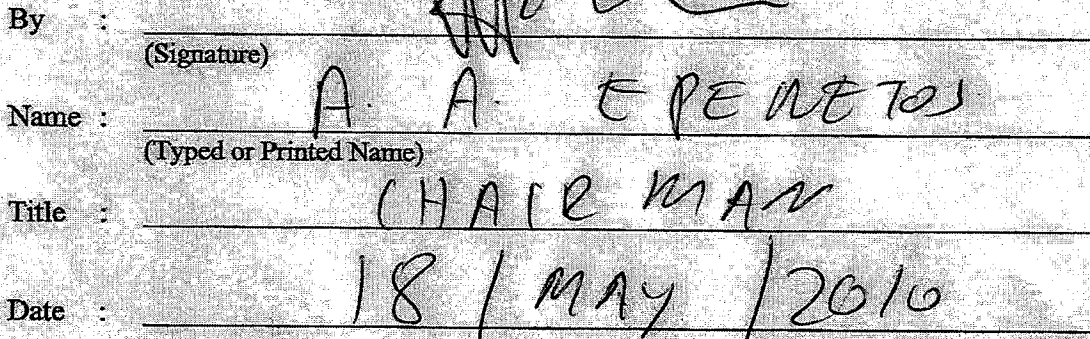 By :
(Signature)
Name : A. A. EPENETOS
(Typed or Printed Name)
Title : CHAIRMAN
Date : 18 / MAY / 2010